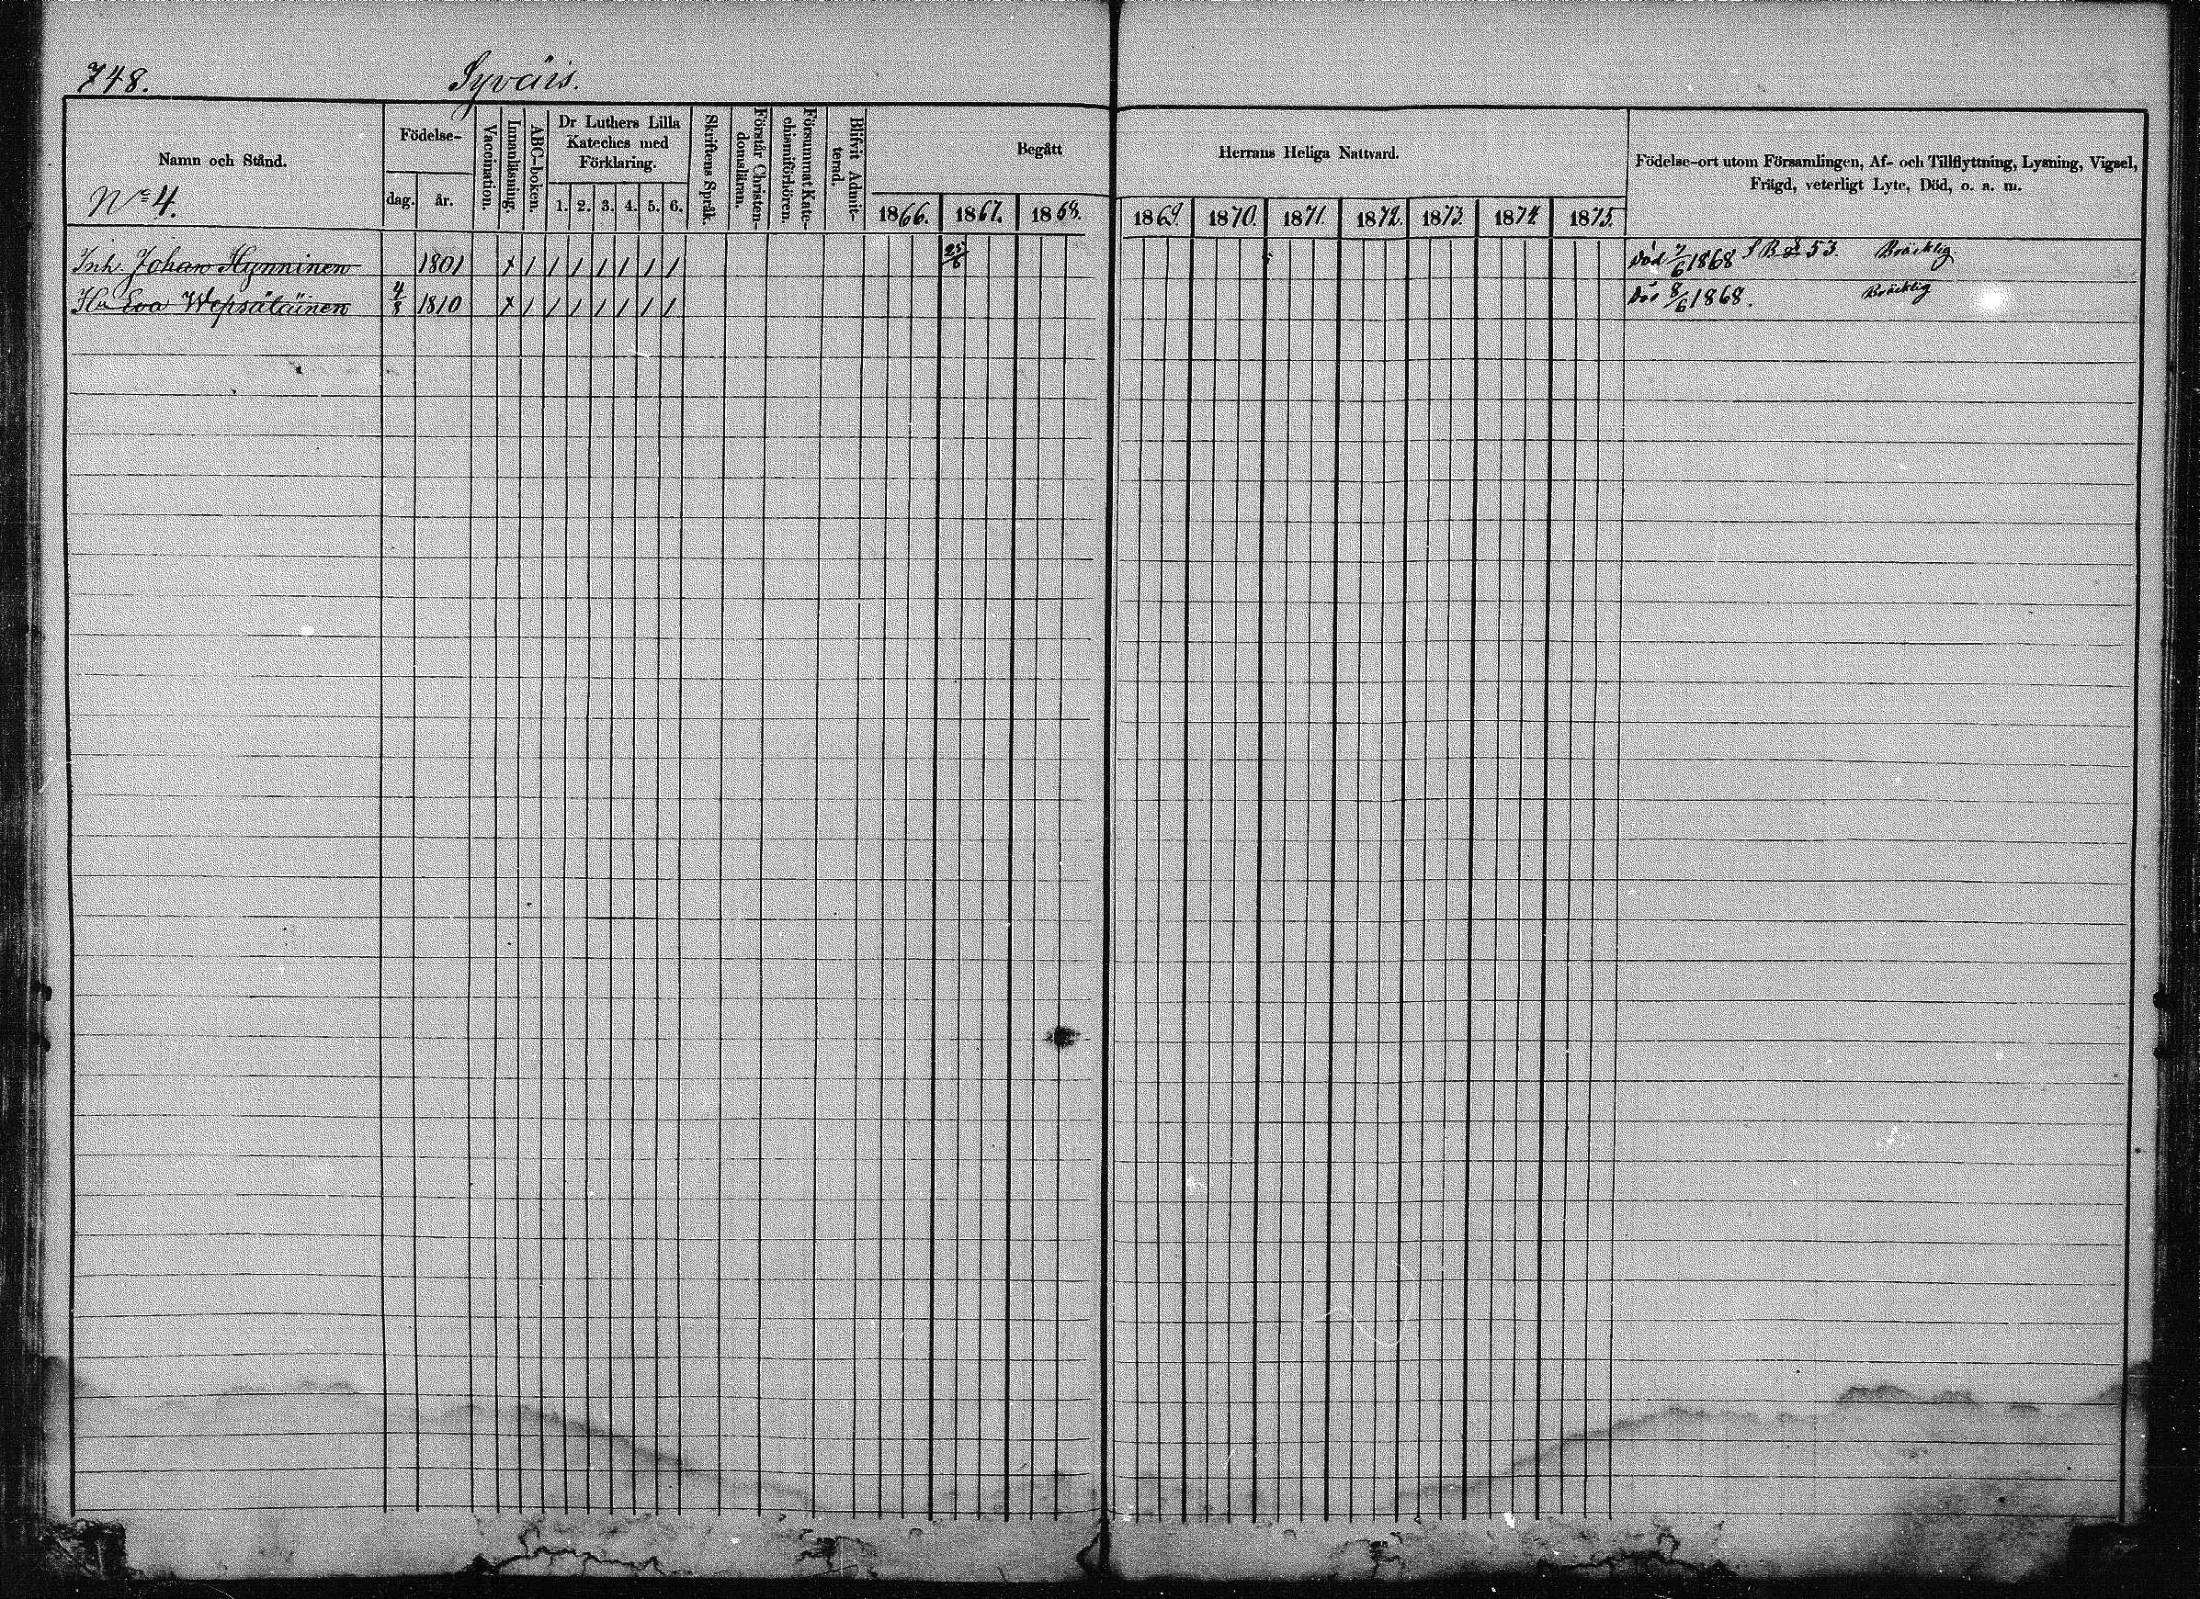 748. Syväis.
Namn och Stånd.
No 4.
Födelse-
dag. år.
Vaccination.
Innanläsning.
ABC-boken.
Dr Luthers Lilla
Kateches med
Förklaring.
1. 2. 3. 4. 5. 6.
Skriftens Språk.
Förstår Christen-
domsläran.
Försummat Kate-
chismiförhören.
Blifvit Admit-
terad.
Begått Herrans Heliga Nattvard.
1866. 1867. 1868. 1869. 1870. 1871. 1872. 1873. 1874 1875.
Födelse-ort utom Församlingen, Af- och Tillflyttning, Lysning, Vigsel,
Frägd, veterligt Lyte, Död, o. a. m.
Inh. Johan Hynninen 1801 x / / / / / / / 25/6 död 7/6 1868 53. Bräcklig
Hu Eva Wepsäläinen 4/8 1810 x / / / / / / / död 8/6 1868. Bräcklig